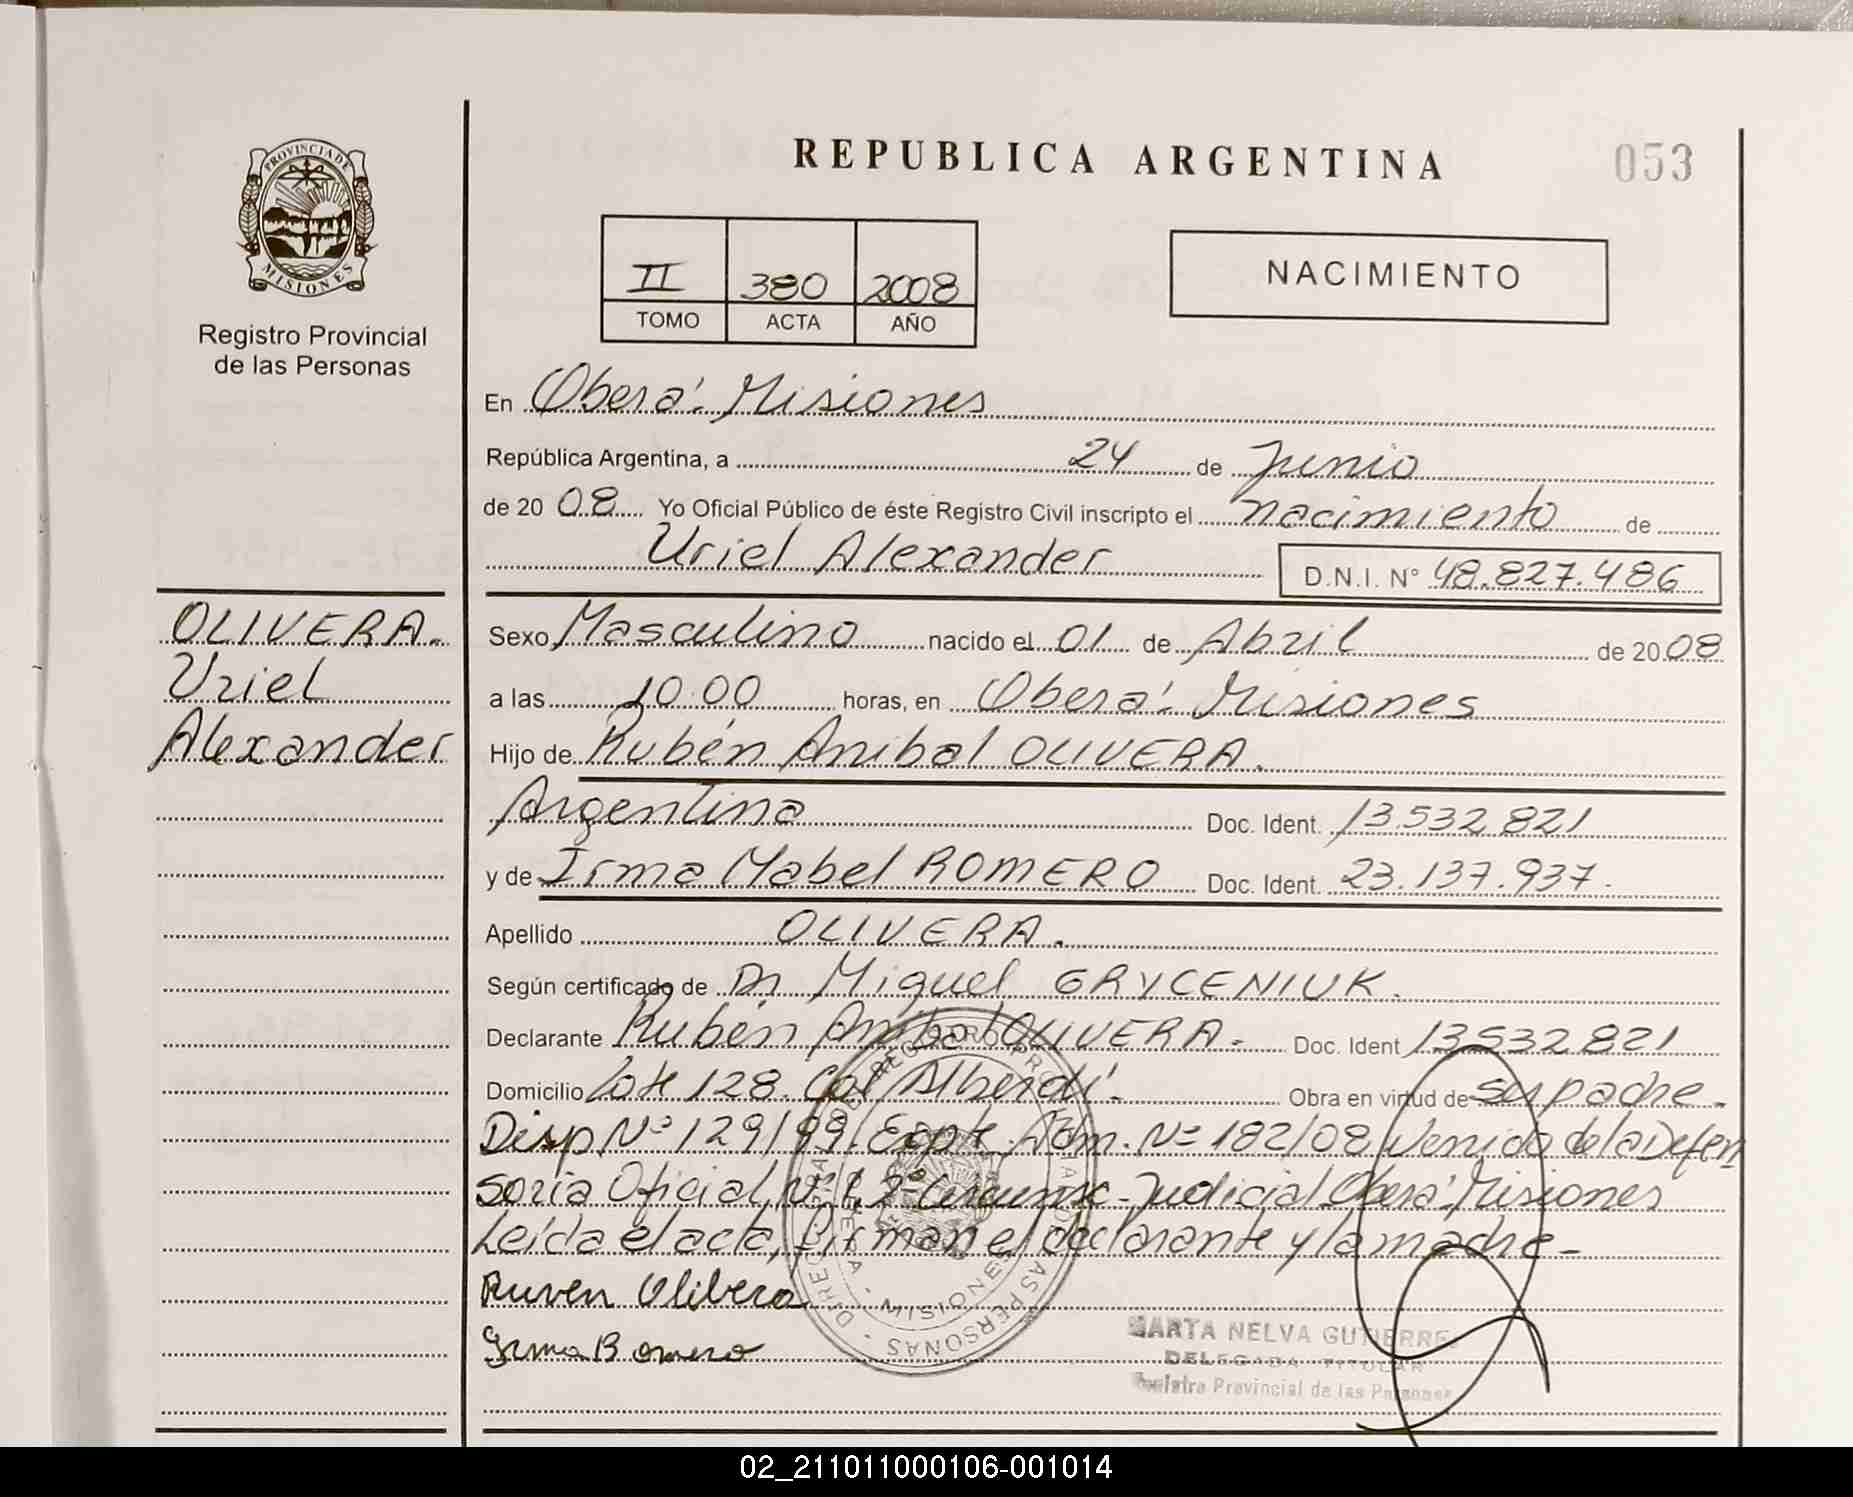 PROVINCIA DE
MISIONES
Registro Provincial
de las Personas
REPUBLICA ARGENTINA 053
II 380 2008
TOMO ACTA AÑO
NACIMIENTO
En Oberá. Misiones
República Argentina, a 24 de Junio
de 20 08 Yo Oficial Público de éste Registro Civil inscripto el nacimiento de
Uriel Alexander D.N.I. N° 48.827.486
OLIVERA.
Uriel
Alexander
Sexo Masculino nacido el 01 de Abril de 20 08
a las 10.00 horas, en Oberá. Misiones
Hijo de Rubén Anibal OLIVERA.
Argentina Doc. Ident. 13.532.821
y de Irma Mabel ROMERO Doc. Ident. 23.137.937.
Apellido OLIVERA.
Según certificado de Dr Miguel GRYCENIUK.
Declarante Rubén Anibal OLIVERA. Doc. Ident 13532821
Domicilio Lote 128. Col Alberdi. Obra en virtud de su padre.
Disp N° 129/99. Expte. Adm. N° 182/08 Venido de la Defen
soria Oficial N° 1, 2° Circunsc. Judicial Oberá Misiones
Leída el acta, firman el declarante y la madre.
Ruven Olibera
Irma Romero
MARTA NELVA GUTIERRE
DELEGADA TITULAR
Registro Provincial de las Personas
MISIONES
02_211011000106-001014